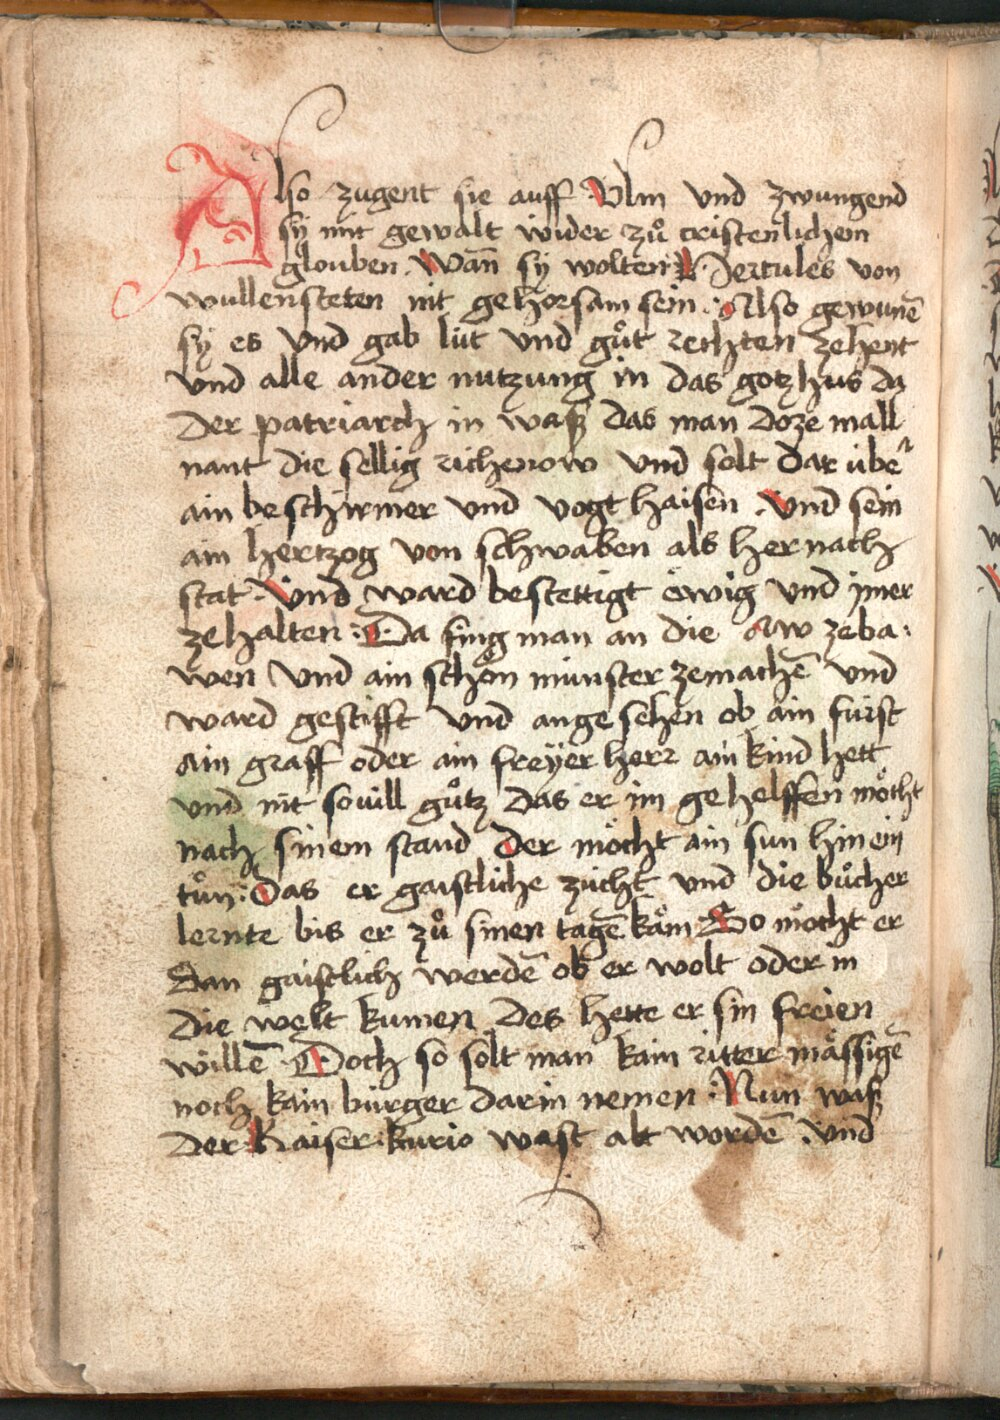 Also zugent sie auff Vlm vnd zwungend
sÿ mit gewalt wider zů cristenlichem
glouben. Wan̄ sÿ wolten Hercules von
wullensteten nit gehorsam sein: Also gewunē
sÿ es vnd gab lüt vnd gůt rechten zehent
vnd alle ander nutzung in das gotzhus da
der patriarch in waß das man doze mall
nant die sellig richenow vnd solt dar übe᷑
ain beschirmer vnd vogt haisen. Vnd sein
ain hertzog von schwaben als her nach
stat. Vnd ward bestettigt ewig vnd jmer
zehalten: Da fing man an die Aw zeba:
wen vnd ain schön münster zemachē vnd
ward gestifft vnd ange sehen ob ain fürst
ain graff oder ain freÿer herr ain kind hett
vnd nit souill gůtz das er im gehelffen möcht
nach sinem stand der möcht ain sun hinein
tůn: Das er gaistliche zücht vnd die bůcher
lernte bis er zů sinen tagē käm So möcht er
dan gaistlich werdē ob er wolt oder in
die welt kumen des hette er sin freien
willē Doch so sölt man kain ritter mässigē
noch kain burger darin nemen: Nun waß
der Kaiser kurio wast alt wordē. vnd